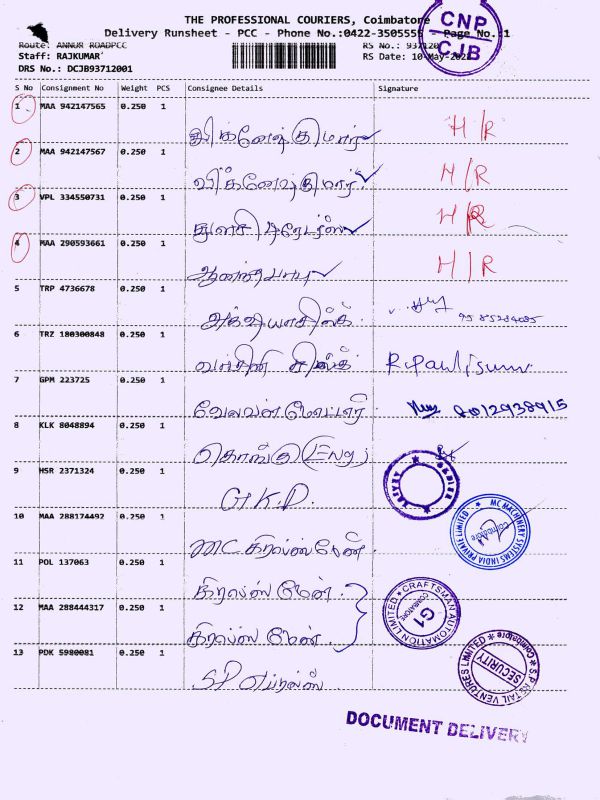 THE PROFESSIONAL COURIERS, Coimbatore
Delivery Runsheet - PCC - Phone No.:0422-3505555 - Page No.:1
CNP
CJB
Route: ANNUR ROADPCC
RS No.: 937120
Staff: RAJKUMAR
RS Date: 10-May-202
DRS No.: DCJB93712001
S No Consignment No Weight PCS Consignee Details Signature
1 MAA 942147565 0.250 1
விக்னேஷ்குமார் H/R
2 MAA 942147567 0.250 1
விக்னேஷ்குமார் H/R
3 VPL 334550731 0.250 1
துளசி டிரேடர்ஸ் H/R
4 MAA 290593661 0.250 1
ஆனந்தபாபு H/R
5 TRP 4736678 0.250 1
6 TRZ 180300848 0.250 1
7 GPM 223725 0.250 1
வேலவன் மோட்டார் 8012938915
8 KLK 8048894 0.250 1
கொங்கு (Eng)
9 HSR 2371324 0.250 1
G.K.D.
10 MAA 288174492 0.250 1
MC MACHINERY SYSTEMS INDIA PRIVATE LIMITED
Coimbatore
11 POL 137063 0.250 1
12 MAA 288444317 0.250 1
CRAFTSMAN AUTOMATION LIMITED
G1
COIMBATORE
13 PDK 5980081 0.250 1
SP
SECURITY
Coimbatore
DOCUMENT DELIVERY